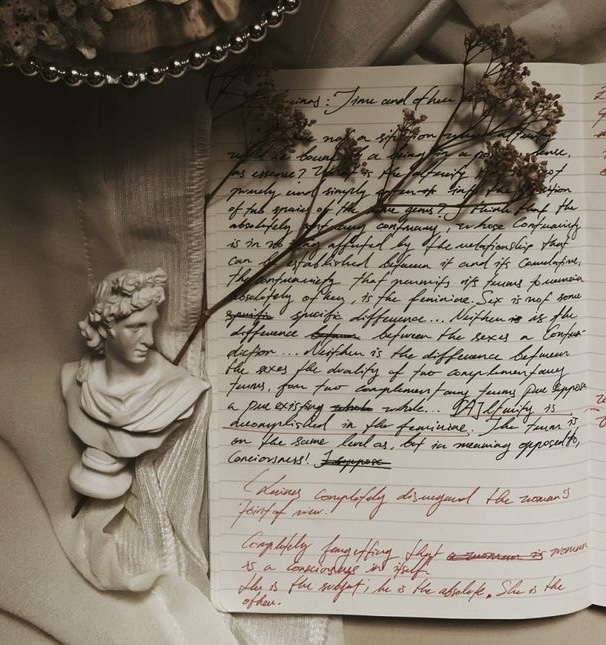 Levinas: Time and other
not a situation where alterity
would be bound by a being in a
as essence? What is the alterity not
purely and simply into the opposition
of two species of the same genus? I think that the
absolutely contrary contrary, whose contrariety
is in no way affected by the relationship that
can be established between it and its correlative,
the contrariety that permits its terms to remain
absolutely other, is the feminine. Sex is not some
specific difference... Neither is the
difference between the sexes a Contra-
diction... Neither is the difference between
the sexes the duality of two complementary
terms, for two complementary terms presuppose
a preexisting whole... Alterity is
accomplished in the feminine. The term is
on the same level as, but in meaning opposed to,
Conciousness! I suppose
Levinas completely disregard the woman's
point of view.
Completely forgetting that a woman is woman
is a conciousness in itself
He is the subject, he is the absolute. She is the
other.